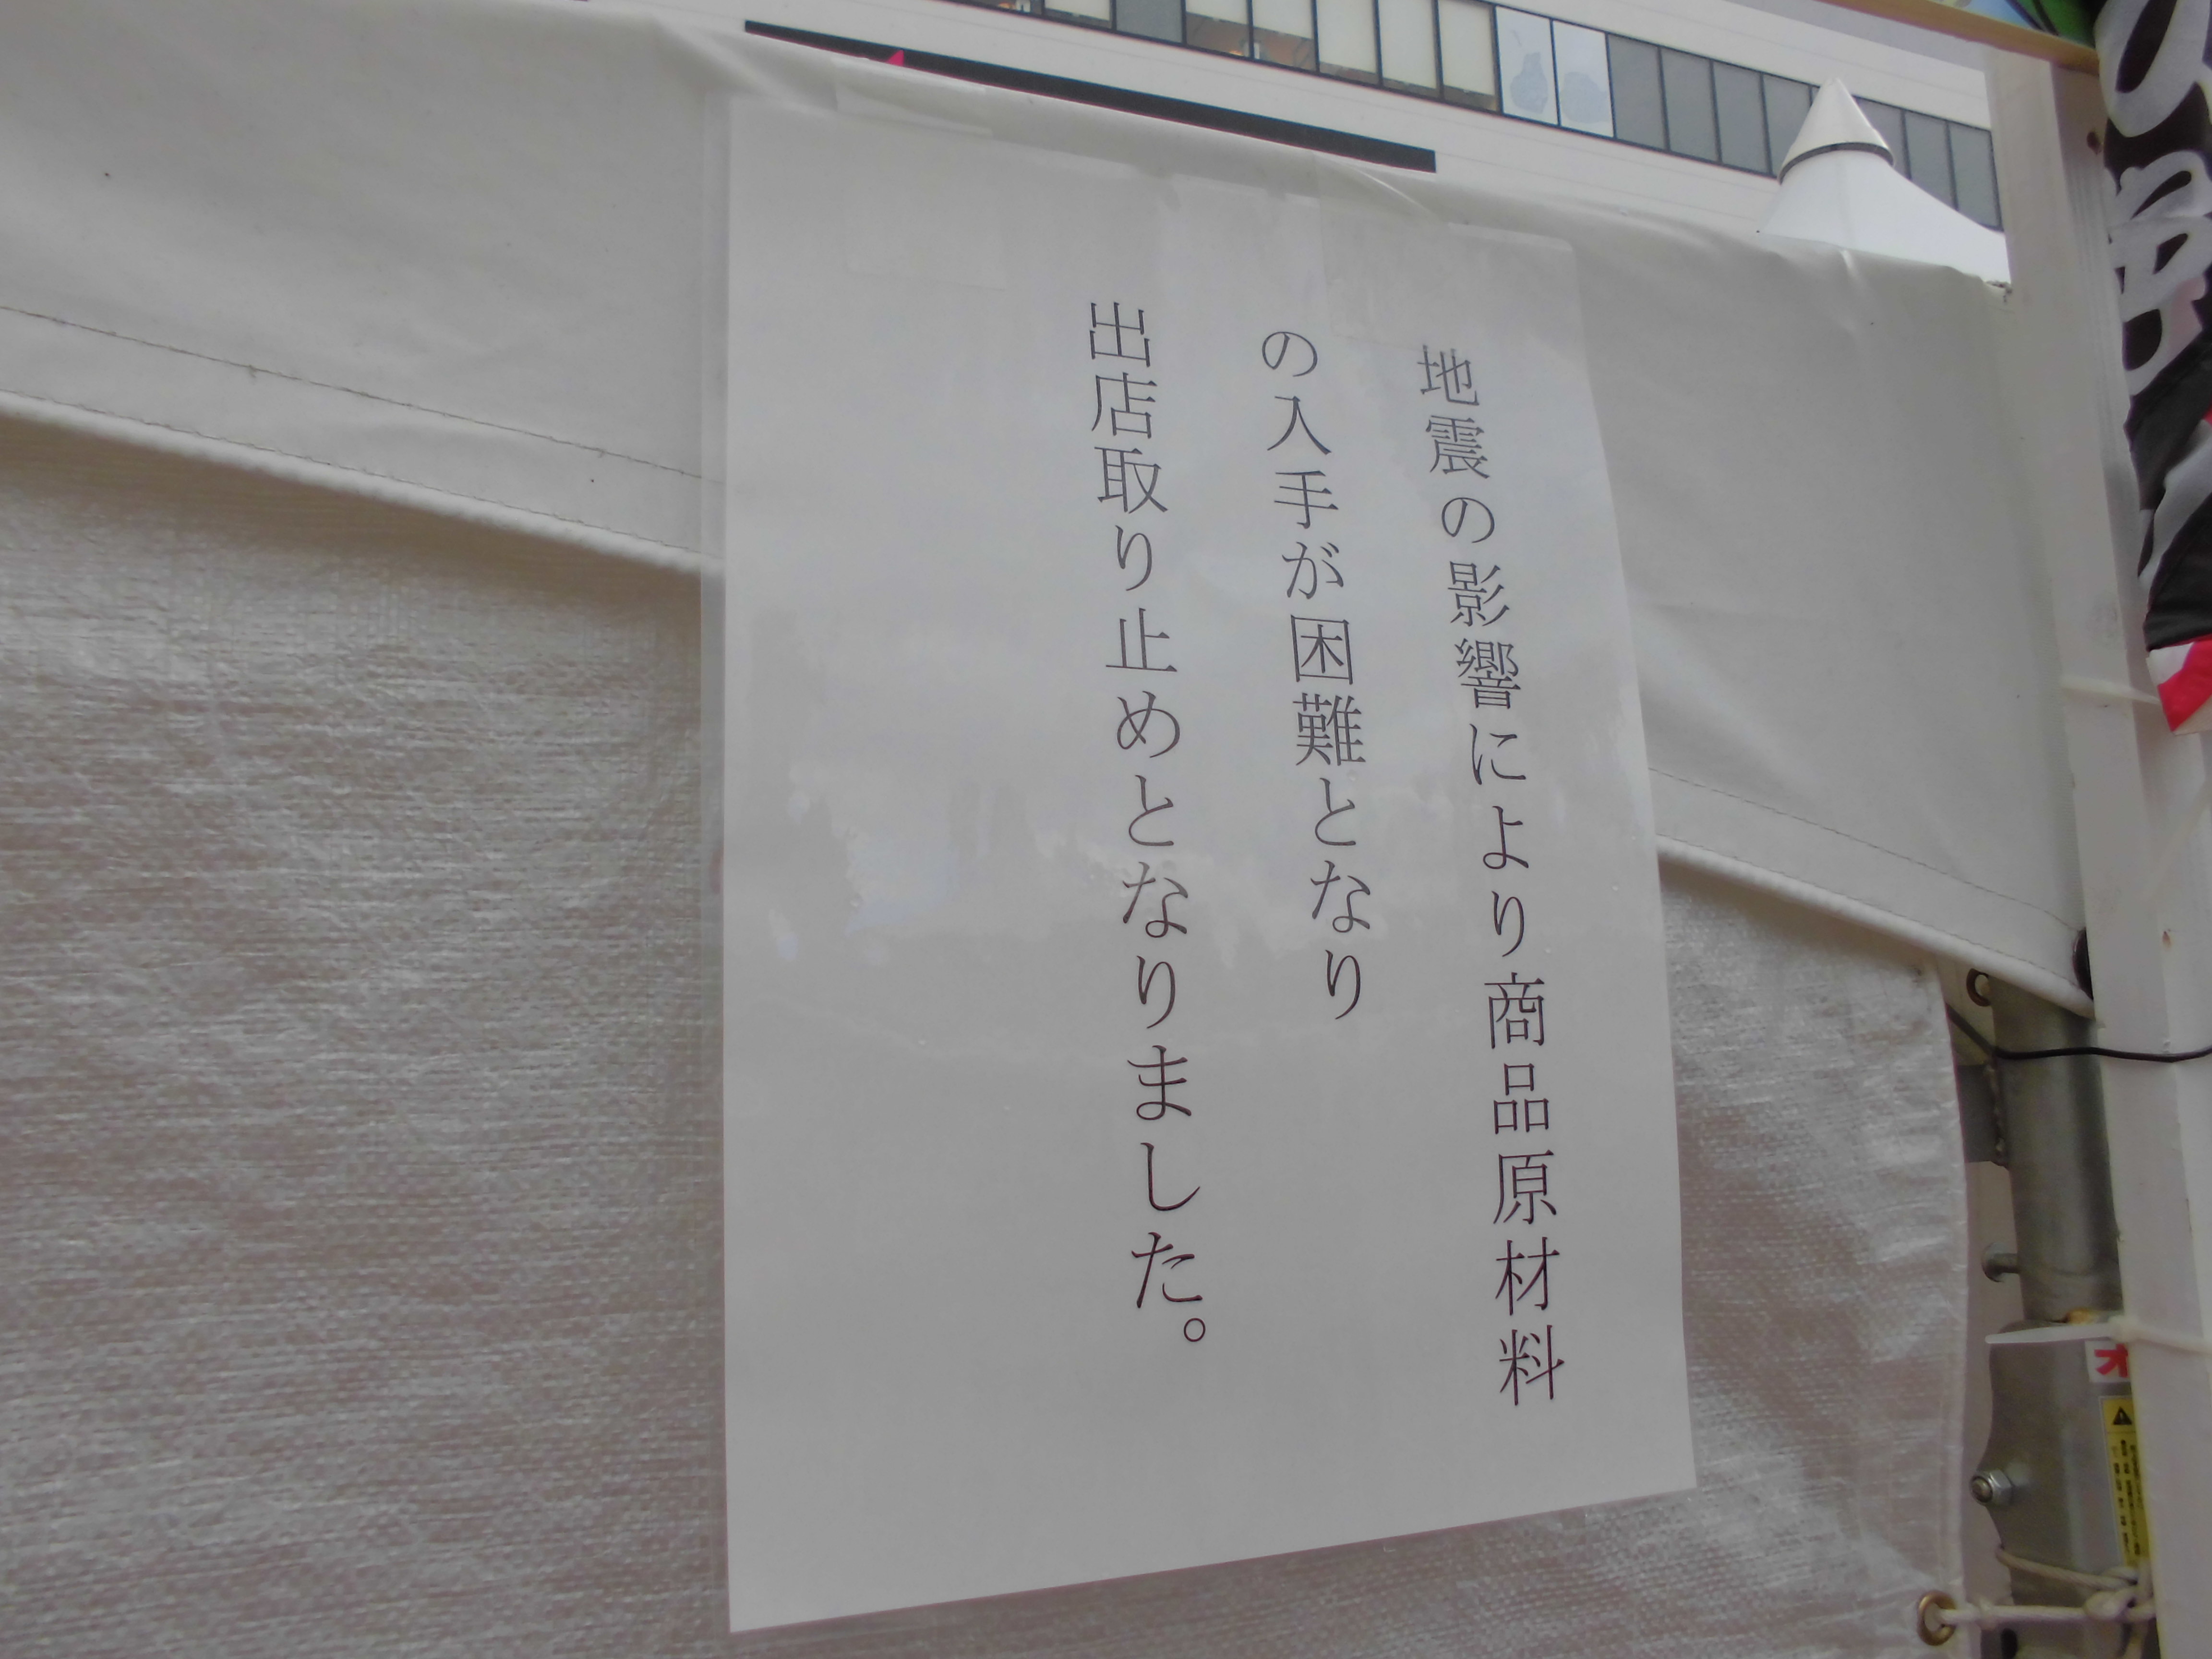 地震の影響により商品原材料
の入手が困難となり
出店取り止めとなりました。